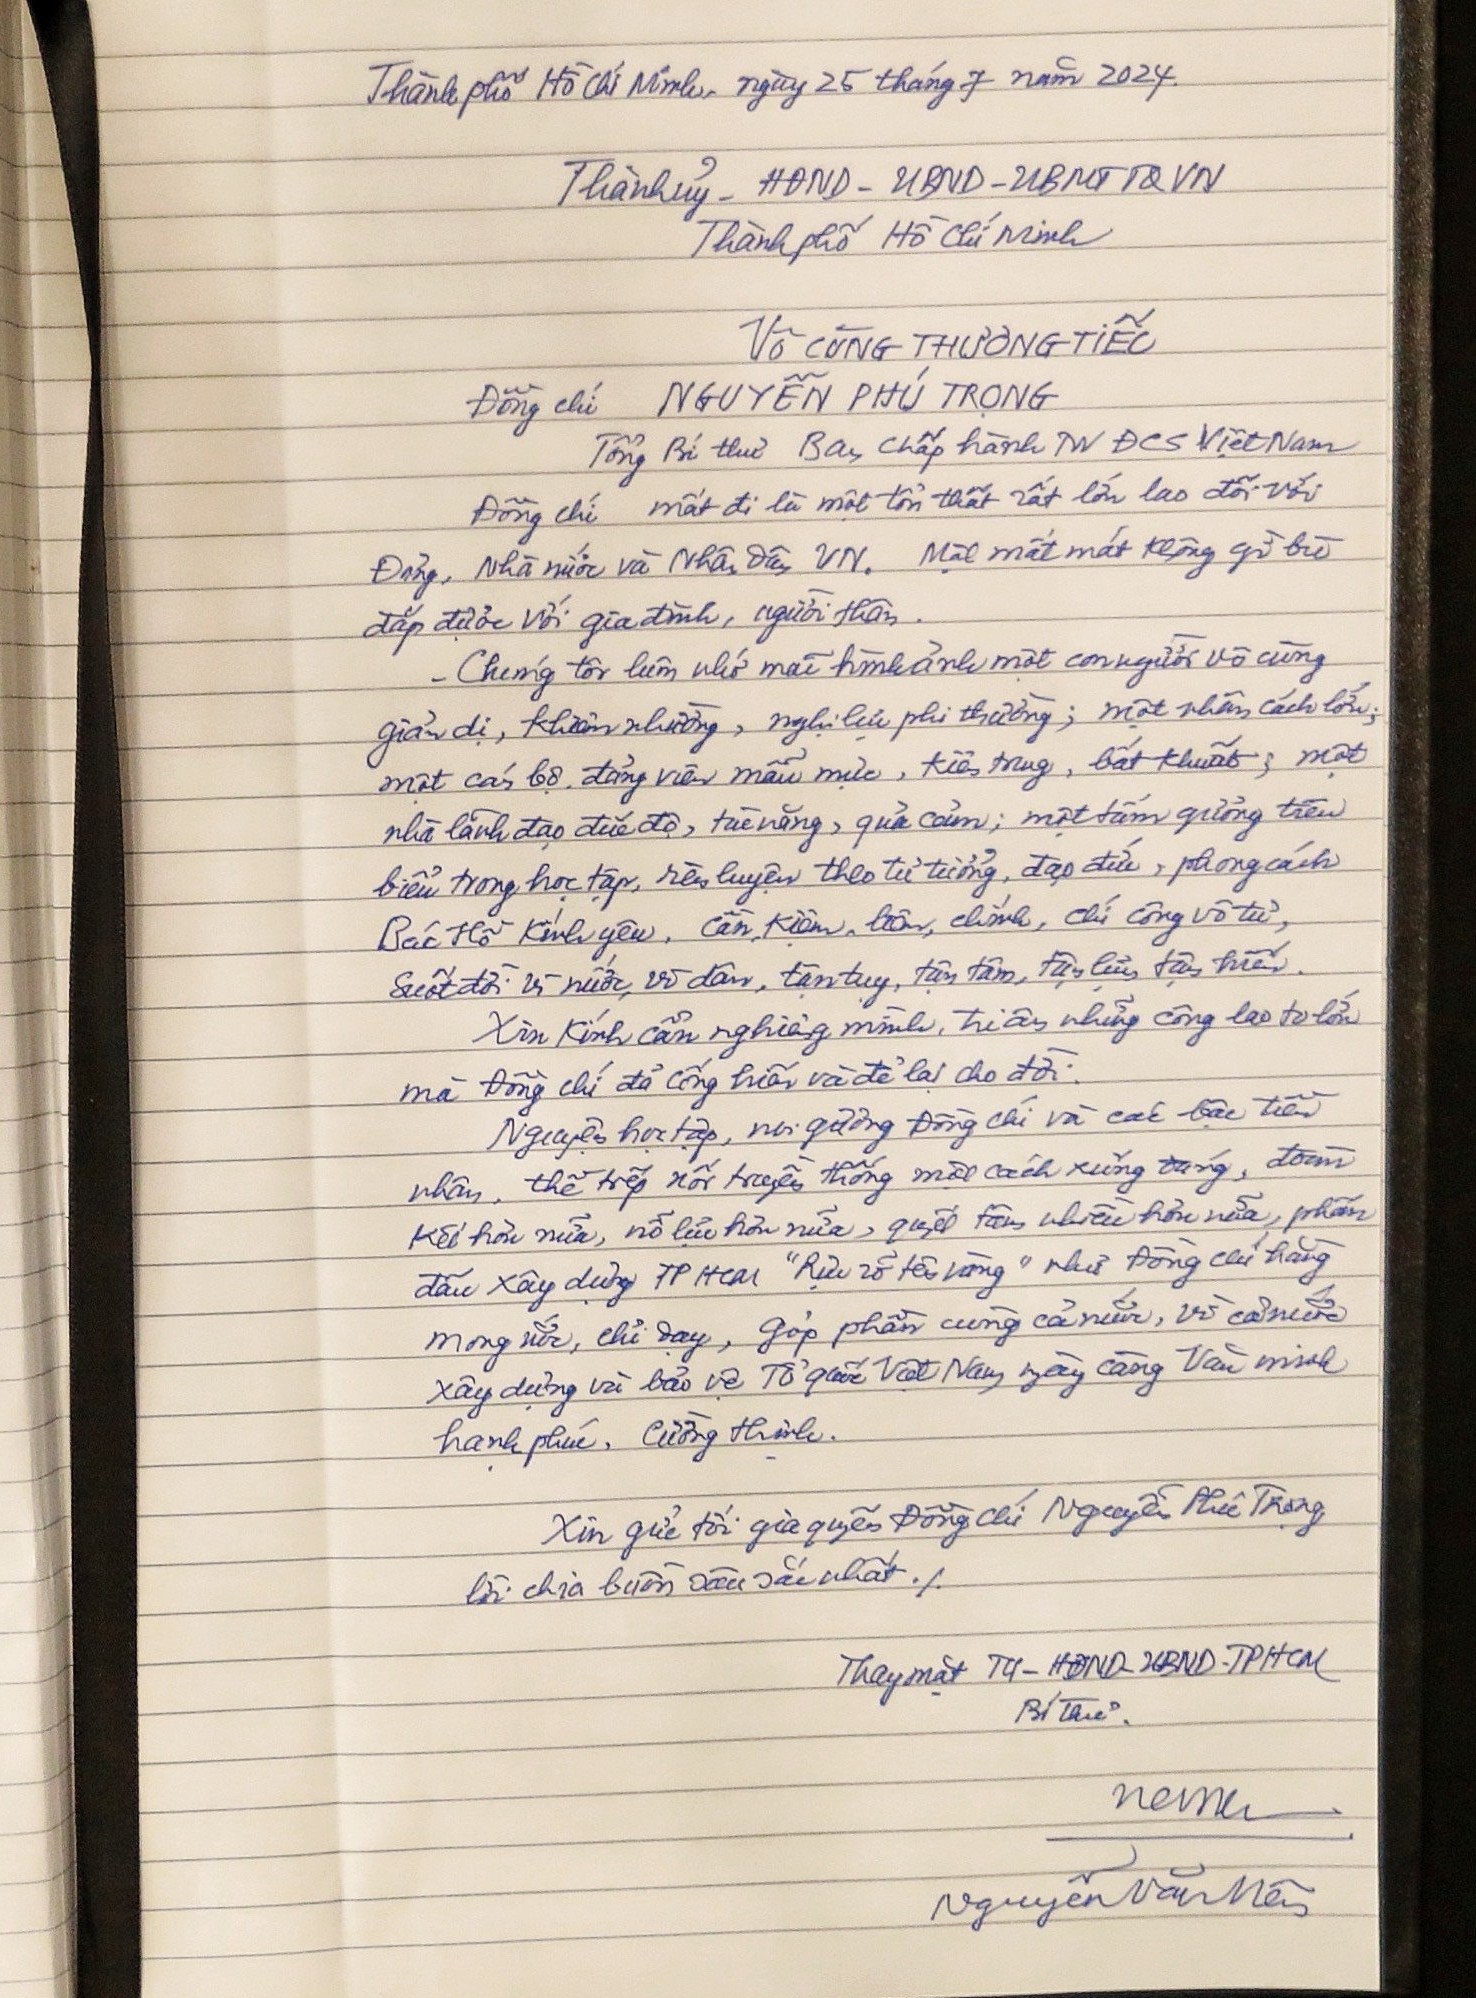 Thành phố Hồ Chí Minh, ngày 25 tháng 7 năm 2024.
Thành ủy - HĐND - UBND - UBMTTQVN
Thành phố Hồ Chí Minh
Vô CÙNG THƯƠNG TIẾC
Đồng chí NGUYỄN PHÚ TRỌNG
Tổng Bí thư Ban Chấp hành TW ĐCS Việt Nam
Đồng chí mất đi là một tổn thất rất lớn lao đối với
Đảng, Nhà nước và Nhân dân VN. Một mất mát không gì bù
đắp được với gia đình, người thân.
- Chúng tôi luôn nhớ mãi hình ảnh một con người vô cùng
giản dị, khiêm nhường, nghị lực phi thường; một nhân cách lớn;
một cán bộ, đảng viên mẫu mực, kiên trung, bất khuất; một
nhà lãnh đạo đức độ, tài năng, quả cảm; một tấm gương tiêu
biểu trong học tập, rèn luyện theo tư tưởng, đạo đức, phong cách
Bác Hồ kính yêu, cần, kiệm, liêm, chính, chí công vô tư,
suốt đời vì nước, vì dân, tận tụy, tận tâm, tận lực, tận hiến.
Xin kính cẩn nghiêng mình, tri ân những công lao to lớn
mà Đồng chí đã cống hiến và để lại cho đời.
Nguyện học tập, noi gương Đồng chí và các bậc tiền
nhân, thế tiếp nối truyền thống một cách xứng đáng, đoàn
kết hơn nữa, nỗ lực hơn nữa, quyết tâm nhiều hơn nữa, phấn
đấu xây dựng TP HCM "Rực rỡ tên vàng" như Đồng chí hằng
mong ước, chỉ dạy, góp phần cùng cả nước, vì cả nước
xây dựng và bảo vệ Tổ quốc Việt Nam ngày càng Văn minh
hạnh phúc, Cường thịnh.
Xin gửi tới gia quyến Đồng chí Nguyễn Phú Trọng
lời chia buồn sâu sắc nhất ./.
Thay mặt TU - HĐND - UBND - TPHCM
Bí Thư.
Nguyễn Văn Nên